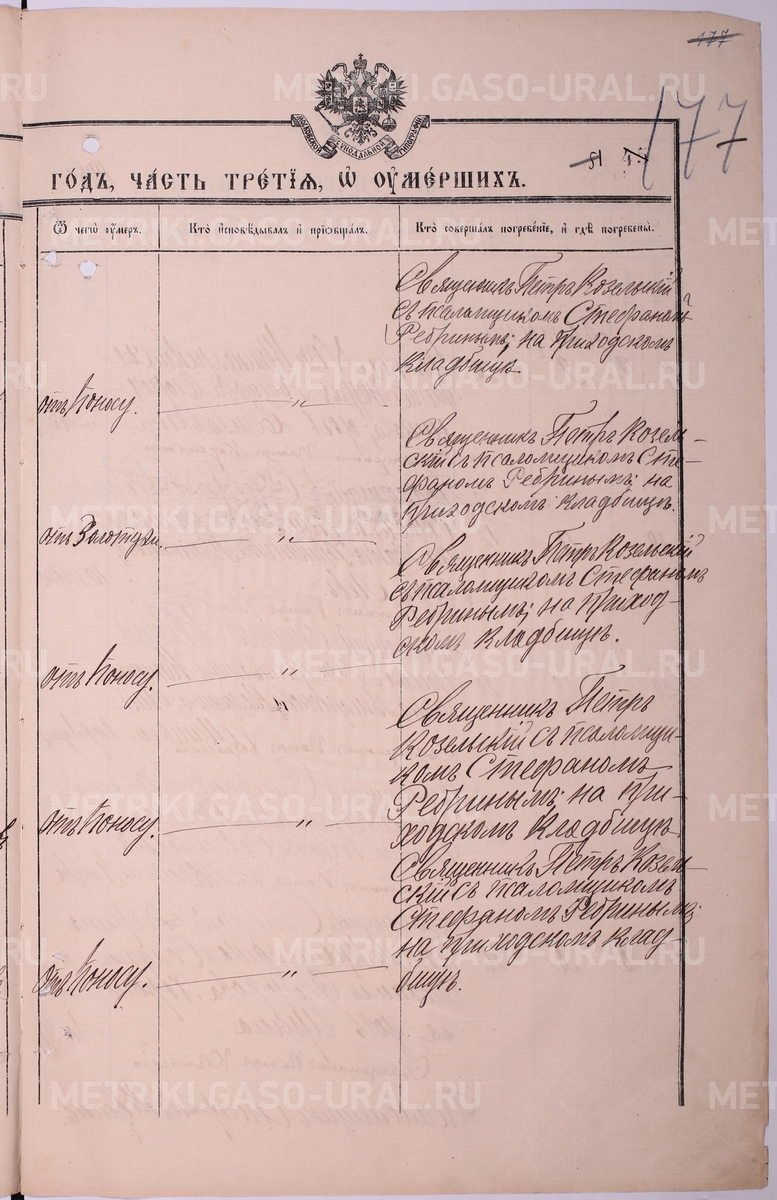 177
177
51
МОСКОВСКОЙ СѴНОДАЛЬНОЙ ТИПОГРАФІИ
ГО́ДЪ, ЧА́СТЬ ТРЕ́ТІѦ, Ѡ҆ ОУ҆МЕ́РШИХЪ.
Ѿ чегѡ̀ оу҆́меръ.
Кто̀ и҆сповѣ́дывалъ и҆ прїѡбща́лъ.
Кто̀ соверша́лъ погребе́нїе, и҆ гдѣ̀ погребены̀.
Священникъ Петръ Козельскій
съ псаломщикомъ Стефаномъ
Ребринымъ; на приходскомъ
кладбищѣ
отъ Поносу. — „ —
Священникъ Петръ Козель-
скій съ псаломщикомъ Сте-
фаномъ Ребринымъ: на
приходскомъ кладбищѣ.
отъ Золотухи. — „ —
Священникъ Петръ Козельскій
съ псаломщикомъ Стефаномъ
Ребринымъ; на приход-
скомъ кладбищѣ.
отъ Поносу. — „ —
Священникъ Петръ
Козельскій съ псаломщи-
комъ Стефаномъ
Ребринымъ; на при-
ходскомъ кладбищѣ
отъ Поносу. — „ —
Священникъ Петръ Козель-
скій съ псаломщикомъ
Стефаномъ Ребринымъ;
на приходскомъ клад-
бищѣ.
отъ Поносу. — „ —
METRIKI.GASO-URAL.RU